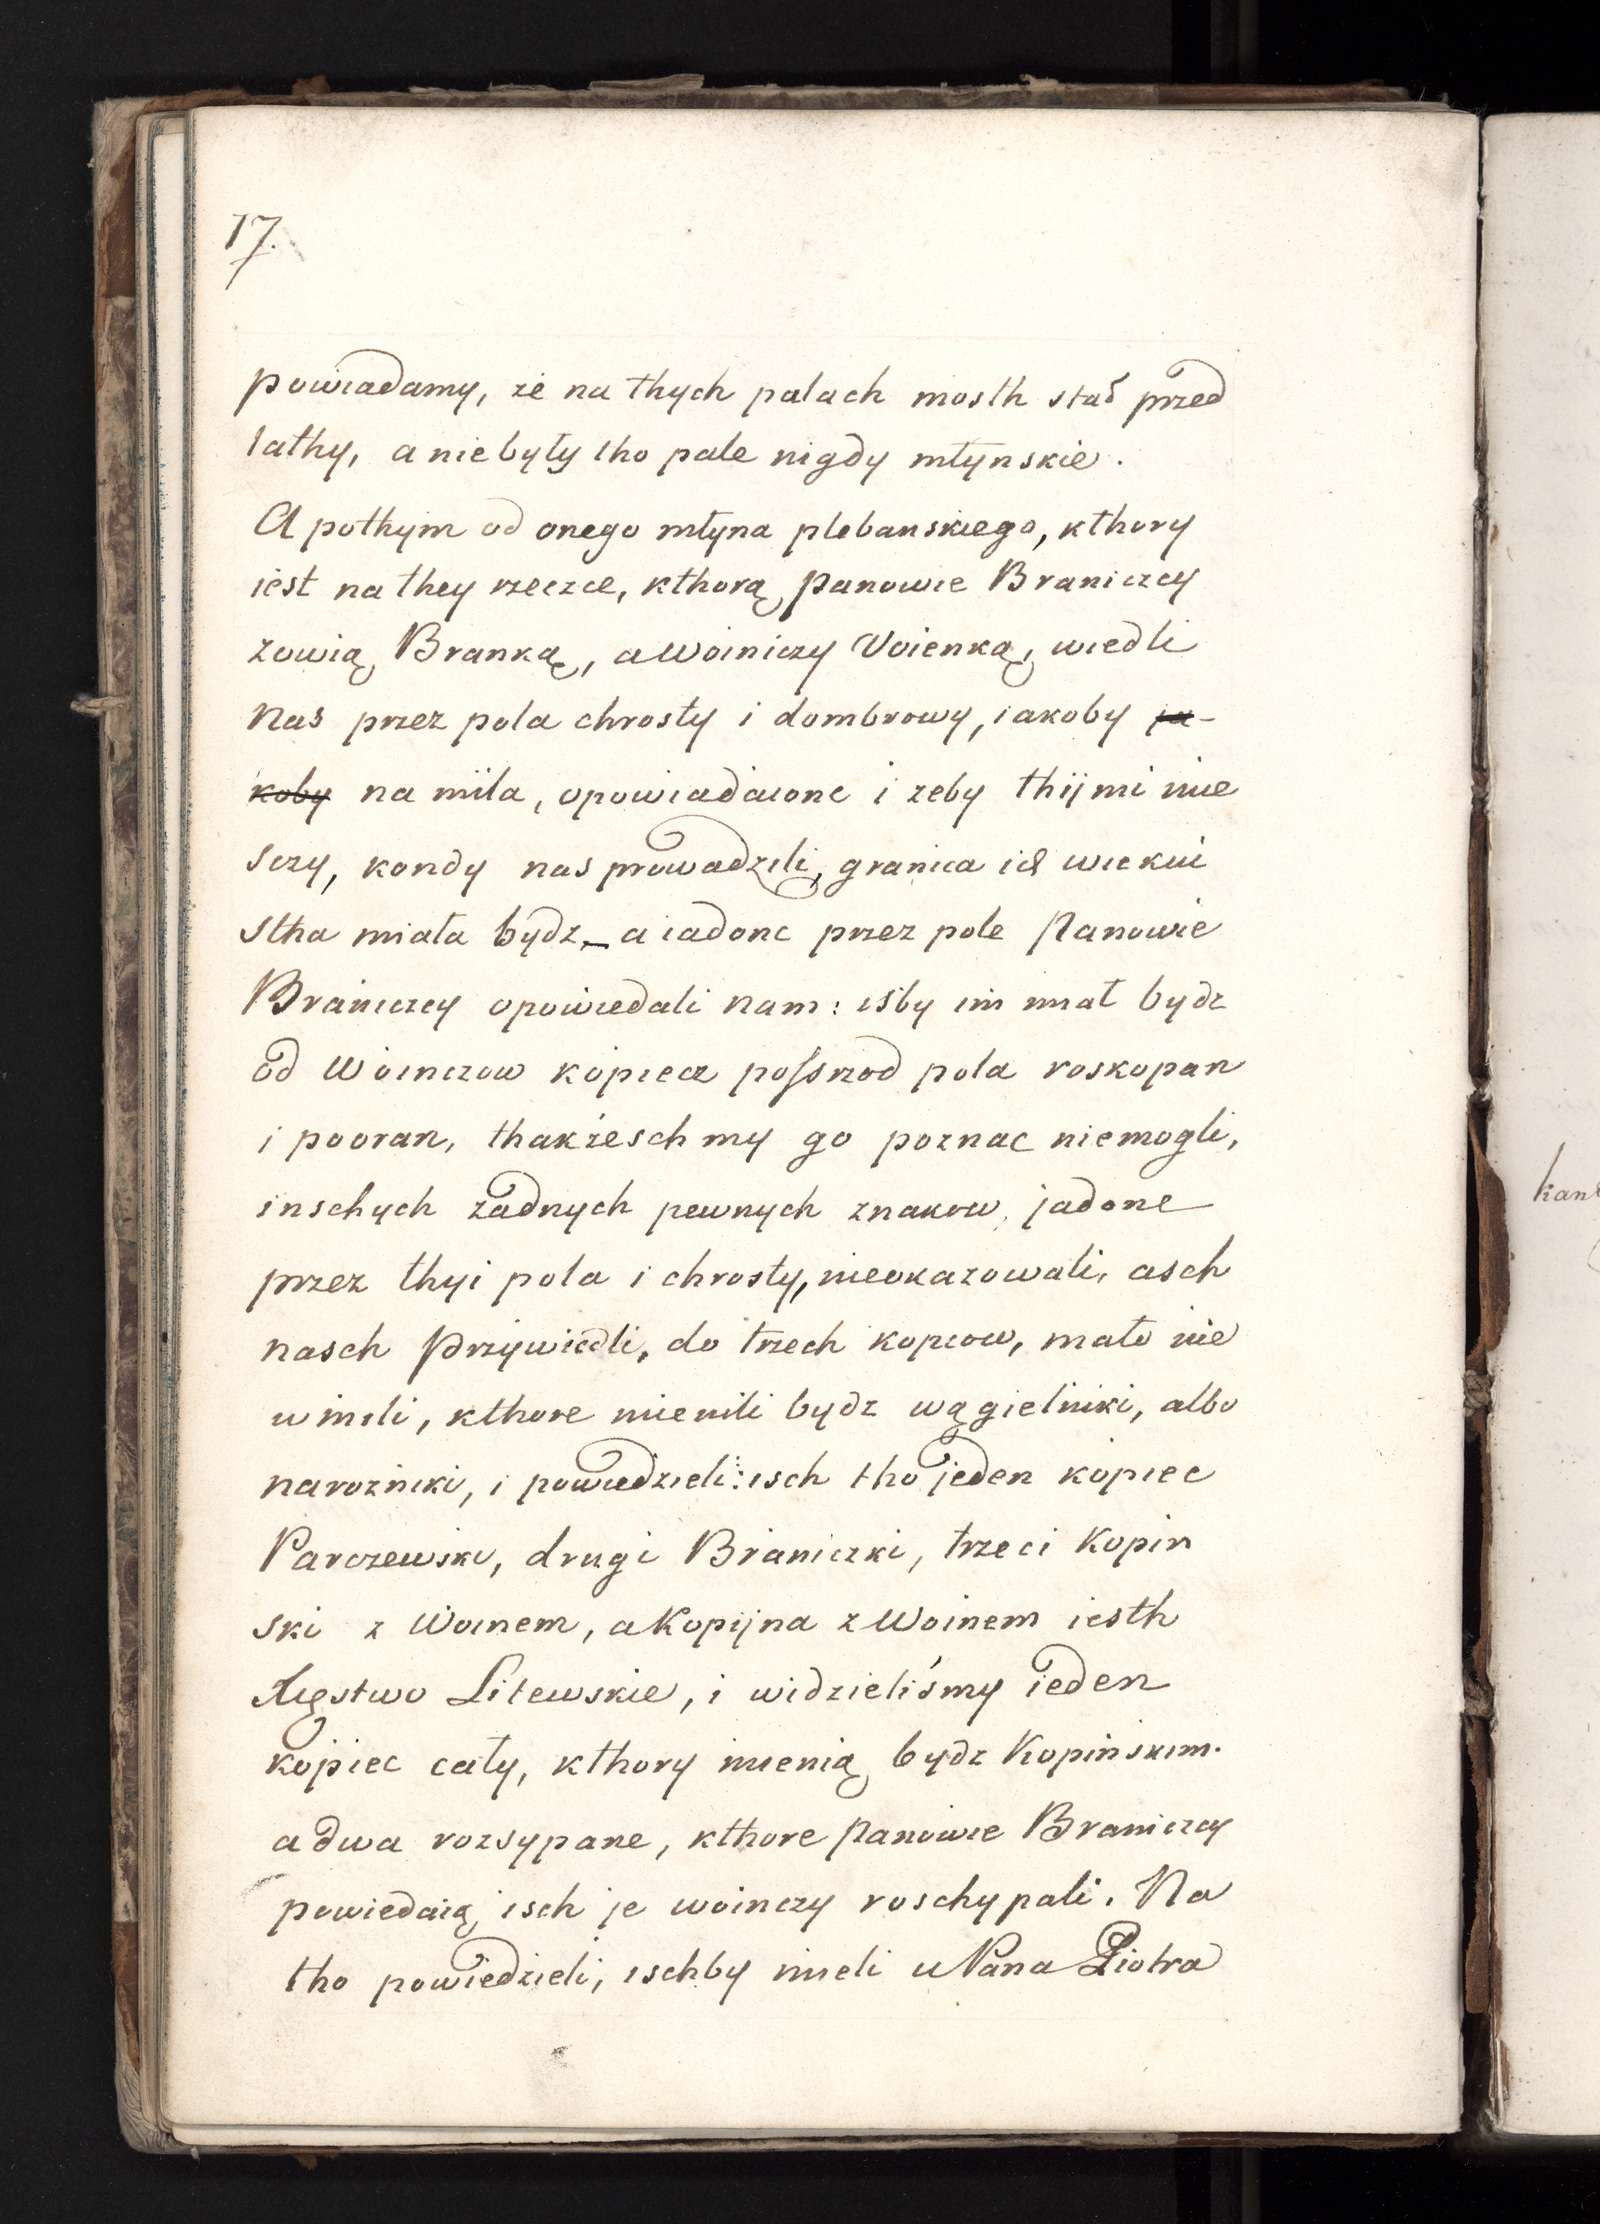 17.
powiadamy, że na thych palach mosth stał przed
lathy, a nie były tho pale nigdy młynskie.
A pothym od onego młyna plebanskiego, kthory
iest na they rzeczce, kthorą Panowie Braniczcy
zowią Branką, a Woiniczy Voienką, wiedli
nas przez pola chrosty i dombrowy, iakoby ja-
koby na mila, opowiadaionc i zeby thijmi mie
sczy, kondy nas prowadzili, granica ich wiekui
stha miała bydz, – a iadonc przez pole Panowie
Braniczcy opowiedali nam: isby im miał bydz
od Woinczow kopiecz possrzod pola roskopan
i pooran, thakżesch my go poznac niemogli,
inschych żadnych pewnych znakow, jadonc
przez thyi pola i chrosty, nieokazowali, asch
nasch Przywiedli, do trzech kopcow, mało nie
w mili, kthore mienili bydz wągielniki, albo
narozniki, i powiedzieli: isch tho jeden kopiec
Parczewski, drugi Braniczki, trzeci Kopin
ski z Woinem, a Kopijna z Woinem iesth
Xięstwo Litewskie, i widzieliśmy ieden
kopiec cały, kthory mienią bydz Kopinskim.
a dwa rozsypane, kthore Panowie Braniczcy
powiedaią isch je woinczy roschypali. Na
tho powiedzieli, ischby mieli u Pana Piotra